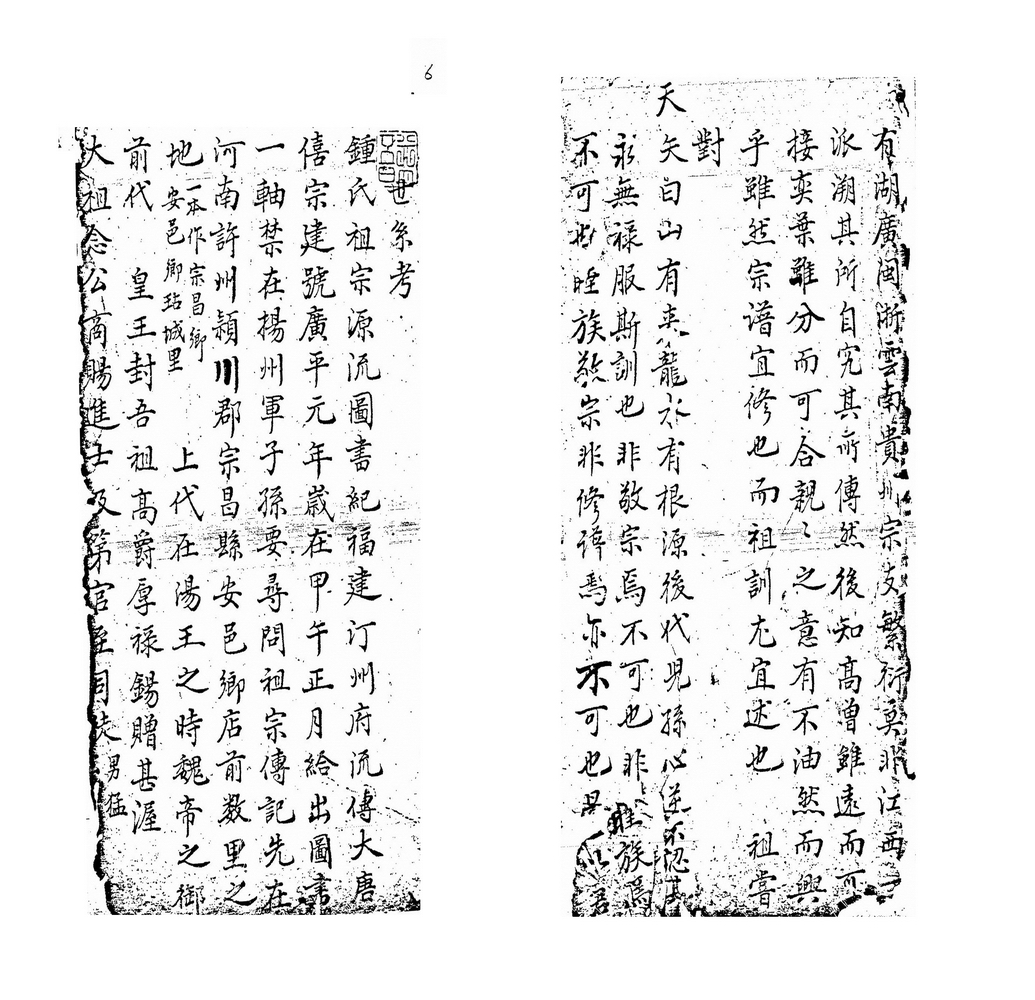 有湖廣閩浙雲南貴州宗支繁衍莫非江西一
派溯其所自究其所傳然後知高曾雖遠而可
接奕葉雖分而可合親〻之意有不油然而興
乎雖然宗譜宜修也而祖訓尤宜述也 祖嘗
對
天矢曰山有來龍水有根源後代兒孫心逆不認其
永無祿服斯訓也非敬宗焉不可也非睦族焉
不可也睦族敬宗非修譜焉亦不可也是以君
6
世系考
鍾氏祖宗源流圖書紀福建汀州府流傳大唐
僖宗建號廣平元年歲在甲午正月給出圖書
一軸禁在揚州軍子孫要尋問祖宗傳記先在
河南許州潁川郡宗昌縣安邑鄉店前数里之
地 一本作宗昌鄉安邑鄉玷城里 上代在湯王之時魏帝之御
前代 皇王封吾祖高爵厚祿錫贈甚渥
大祖念公商賜進士及第官至司徒男猛